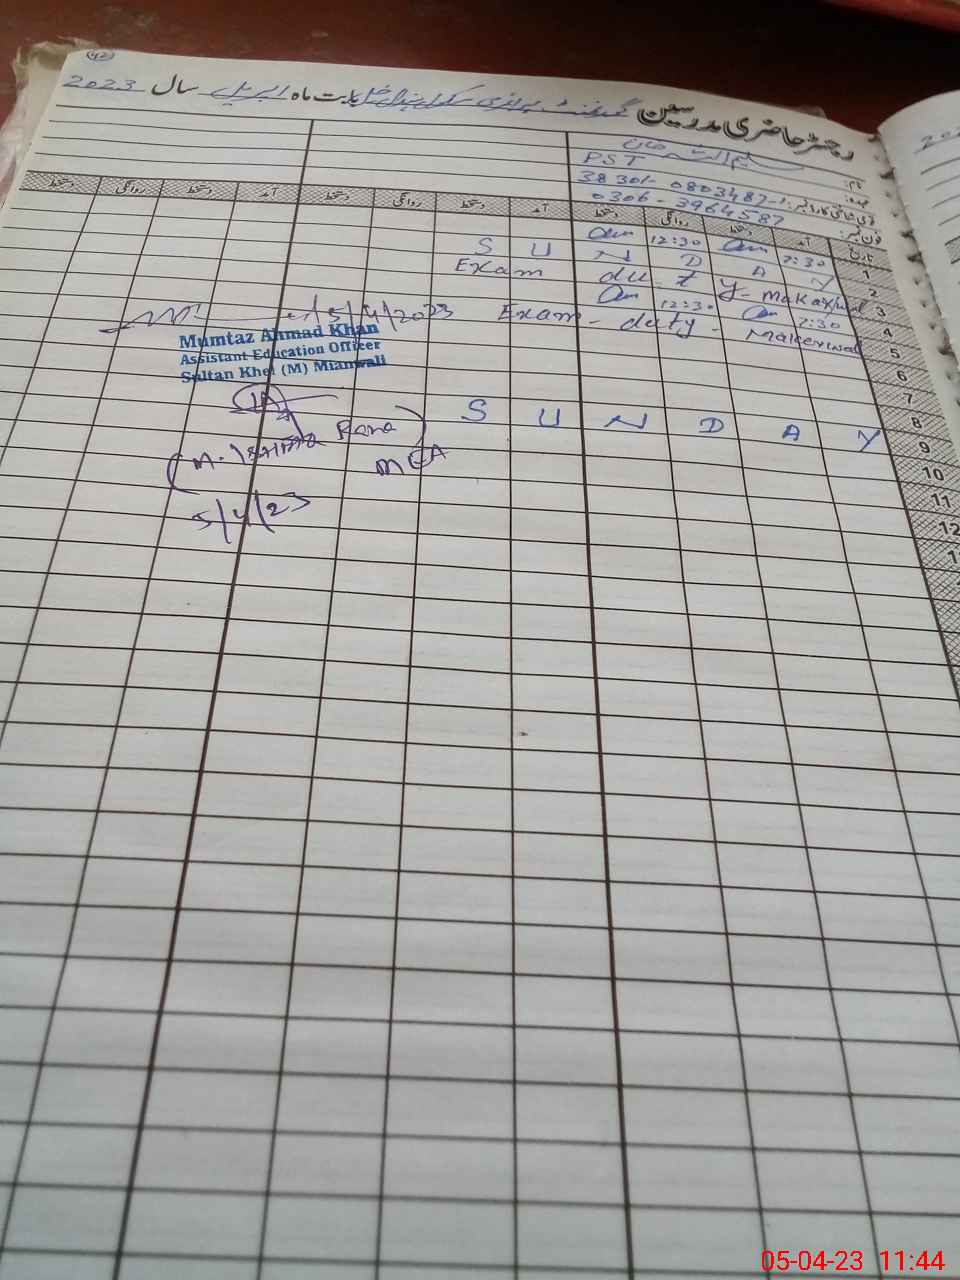 42
رجسٹر حاضری مدرسین گورنمنٹ پرائمری سکول بابت ماہ اپریل سال 2023
نام: سلیم اللہ خان
عہدہ: PST
قومی شناختی کارڈ نمبر: 38301-0803487-1
فون نمبر: 0306-3964587
تاریخ آمد دستخط روانگی دستخط آمد دستخط روانگی دستخط آمد دستخط روانگی دستخط
1 7:30 12:30
2 S U N D A Y
3 Exam duty - Makarwal
4 7:30 12:30
5 Exam - duty - Makerwal
6
7
8
9 S U N D A Y
10
11
12
5/4/2023
Mumtaz Ahmad Khan
Assistant Education Officer
Sultan Khel (M) Mianwali
Rana
MEA
5/4/23
05-04-23 11:44